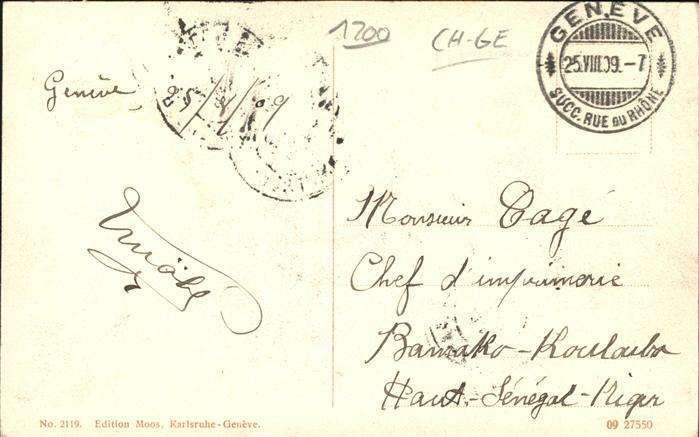 1700
CH-GE
GENÈVE
25.VIII.09.-7
SUCC. RUE DU RHÔNE
Genève
Monsieur Pagé
Chef d'imprimerie
Bamako-Koulouba
Haut-Sénégal-Niger
No. 2119. Edition Moos, Karlsruhe-Genève.
09 27550